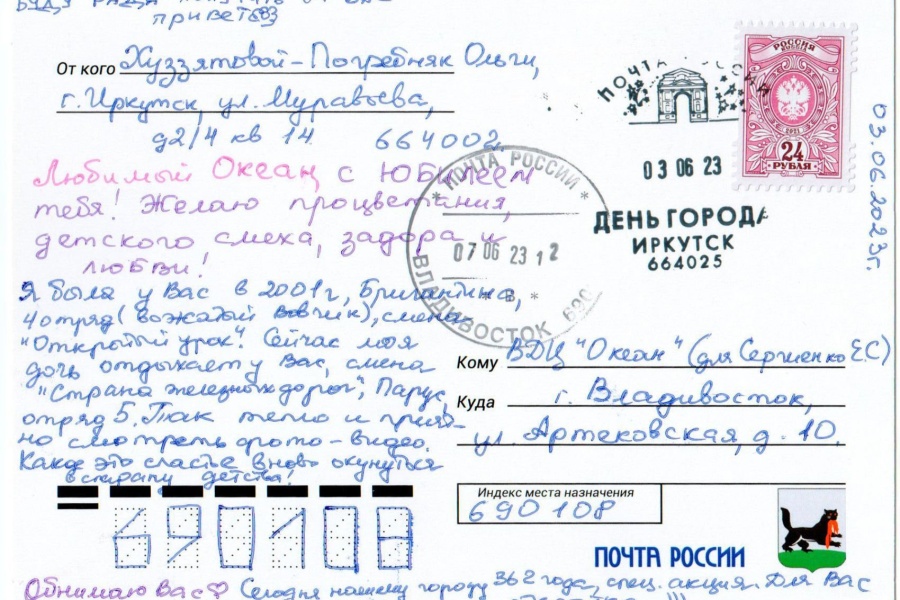 приветы
От кого Хуззятовой-Погребняк Ольги,
г. Иркутск, ул. Муравьева,
д2/4 кв 14 664002
Любимый Океан с Юбилеем
тебя! Желаю процветания,
детского смеха, задора и
любви!
Я была у Вас в 2001г, Бригантина,
4 отряд (вожатый Вовчик), смена
"Открытый урок". Сейчас моя
дочь отдыхает у Вас, смена
"Страна железных дорог", Парус,
отряд 5. Так тепло и прият-
но смотреть фото-видео.
Какое это счастье вновь окунуться
в страну детства!
ПОЧТА РОССИИ
РОССИЯ
ROSSIA
2021
24
РУБЛЯ
03.06.2023г.
03 06 23
ДЕНЬ ГОРОДА
ИРКУТСК
664025
ПОЧТА РОССИИ
07 06 23 12
* В *
ВЛАДИВОСТОК 690
Кому ВДЦ "Океан" (для Сергиенко Е.С)
Куда г. Владивосток,
ул. Артековская, д. 10.
Индекс места назначения
690108
690108
ПОЧТА РОССИИ
Обнимаю Вас♡ Сегодня нашему городу 362 года, спец. акция. Для Вас